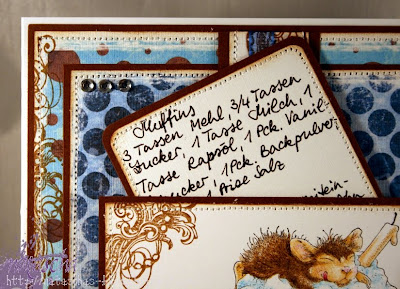 Muffins
3 Tassen Mehl, 3/4 Tassen
Zucker, 1 Tasse Milch, 1
Tasse Rapsöl, 1 Pck. Vanil-
zucker, 1 Pck. Backpulver
1 Prise Salz